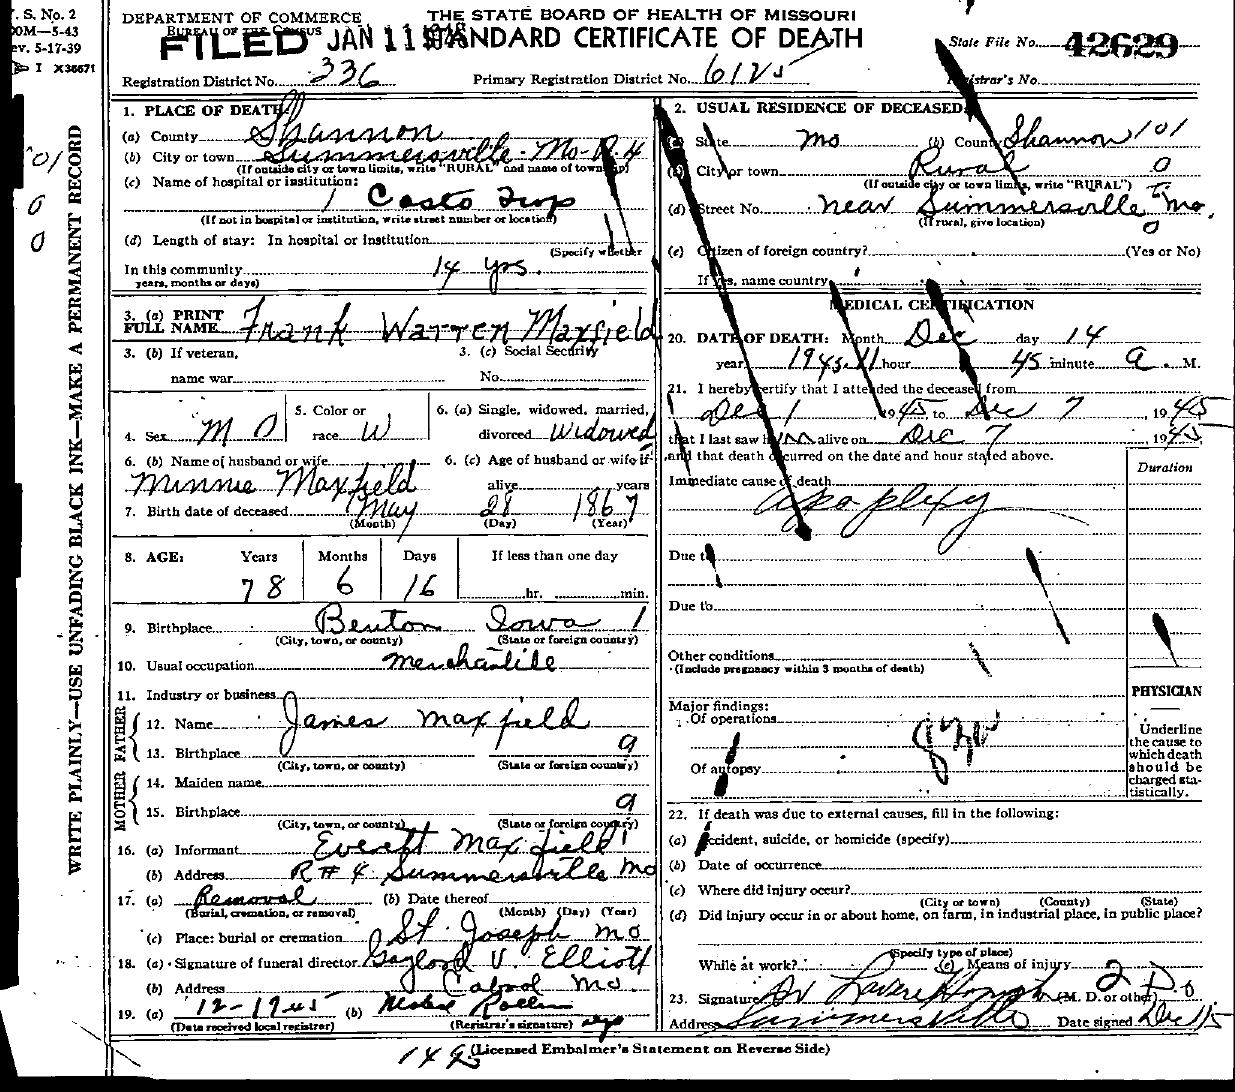 . S. No. 2
OM—5-43
ev. 5-17-39
I X36671
DEPARTMENT OF COMMERCE
BUREAU OF THE CENSUS
THE STATE BOARD OF HEALTH OF MISSOURI
STANDARD CERTIFICATE OF DEATH
FILED JAN 11
State File No. 42629
Registration District No. 336
Primary Registration District No. 6125
Registrar's No.
WRITE PLAINLY—USE UNFADING BLACK INK—MAKE A PERMANENT RECORD
1. PLACE OF DEATH
(a) County Shannon
(b) City or town Summersville - Mo - R 4
(If outside city or town limits, write "RURAL" and name of township)
(c) Name of hospital or institution:
Casto Twp
(If not in hospital or institution, write street number or location)
(d) Length of stay: In hospital or institution
(Specify whether
In this community 14 yrs.
years, months or days)
2. USUAL RESIDENCE OF DECEASED
(a) State Mo (b) County Shannon 101
(c) City or town Rural 0
(If outside city or town limits, write "RURAL")
(d) Street No. near Summersville Mo.
(If rural, give location) 0
(e) Citizen of foreign country? (Yes or No)
If yes, name country
3. (a) PRINT FULL NAME Frank Warren Maxfield
3. (b) If veteran,
name war
3. (c) Social Security
No.
4. Sex M 0
5. Color or race W
6. (a) Single, widowed, married, divorced Widowed
6. (b) Name of husband or wife
Minnie Maxfield
6. (c) Age of husband or wife if
alive years
7. Birth date of deceased May 28 1867
(Month) (Day) (Year)
8. AGE: Years Months Days If less than one day
78 6 16 hr. min.
9. Birthplace Benton Iowa 1
(City, town, or county) (State or foreign country)
10. Usual occupation merchantile
11. Industry or business
FATHER
12. Name James Maxfield
13. Birthplace 9
(City, town, or county) (State or foreign country)
MOTHER
14. Maiden name
15. Birthplace 9
(City, town, or county) (State or foreign country)
16. (a) Informant Everett Maxfield
(b) Address R # 4 Summersville Mo
17. (a) Removal (b) Date thereof
(Burial, cremation, or removal) (Month) (Day) (Year)
(c) Place: burial or cremation St. Joseph Mo
18. (a) Signature of funeral director Gaylord V. Elliott
(b) Address Cabool Mo.
19. (a) 12-17-45 (b)
(Date received local registrar) (Registrar's signature)
MEDICAL CERTIFICATION
20. DATE OF DEATH: Month Dec day 14
year 1945 11 hour 45 minute a. M.
21. I hereby certify that I attended the deceased from
Dec 1 1945 to Dec 7, 1945
that I last saw him alive on Dec 7 1945
and that death occurred on the date and hour stated above.
Immediate cause of death
apoplexy
Duration
Due to
Due to
Other conditions
(Include pregnancy within 3 months of death)
Major findings:
Of operations
Of autopsy
PHYSICIAN
Underline
the cause to
which death
should be
charged sta-
tistically.
22. If death was due to external causes, fill in the following:
(a) Accident, suicide, or homicide (specify)
(b) Date of occurrence
(c) Where did injury occur?
(City or town) (County) (State)
(d) Did injury occur in or about home, on farm, in industrial place, in public place?
(Specify type of place)
While at work? (e) Means of injury 2
23. Signature (M. D. or other) D O
Address Summersville Date signed Dec 15
149 (Licensed Embalmer's Statement on Reverse Side)